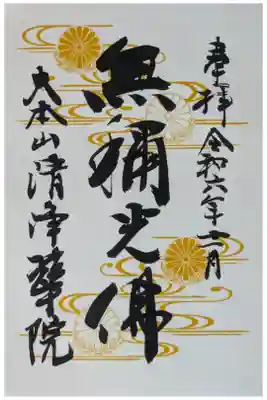 奉拝 令和六年十一月
無稱光佛
大本山清浄華院